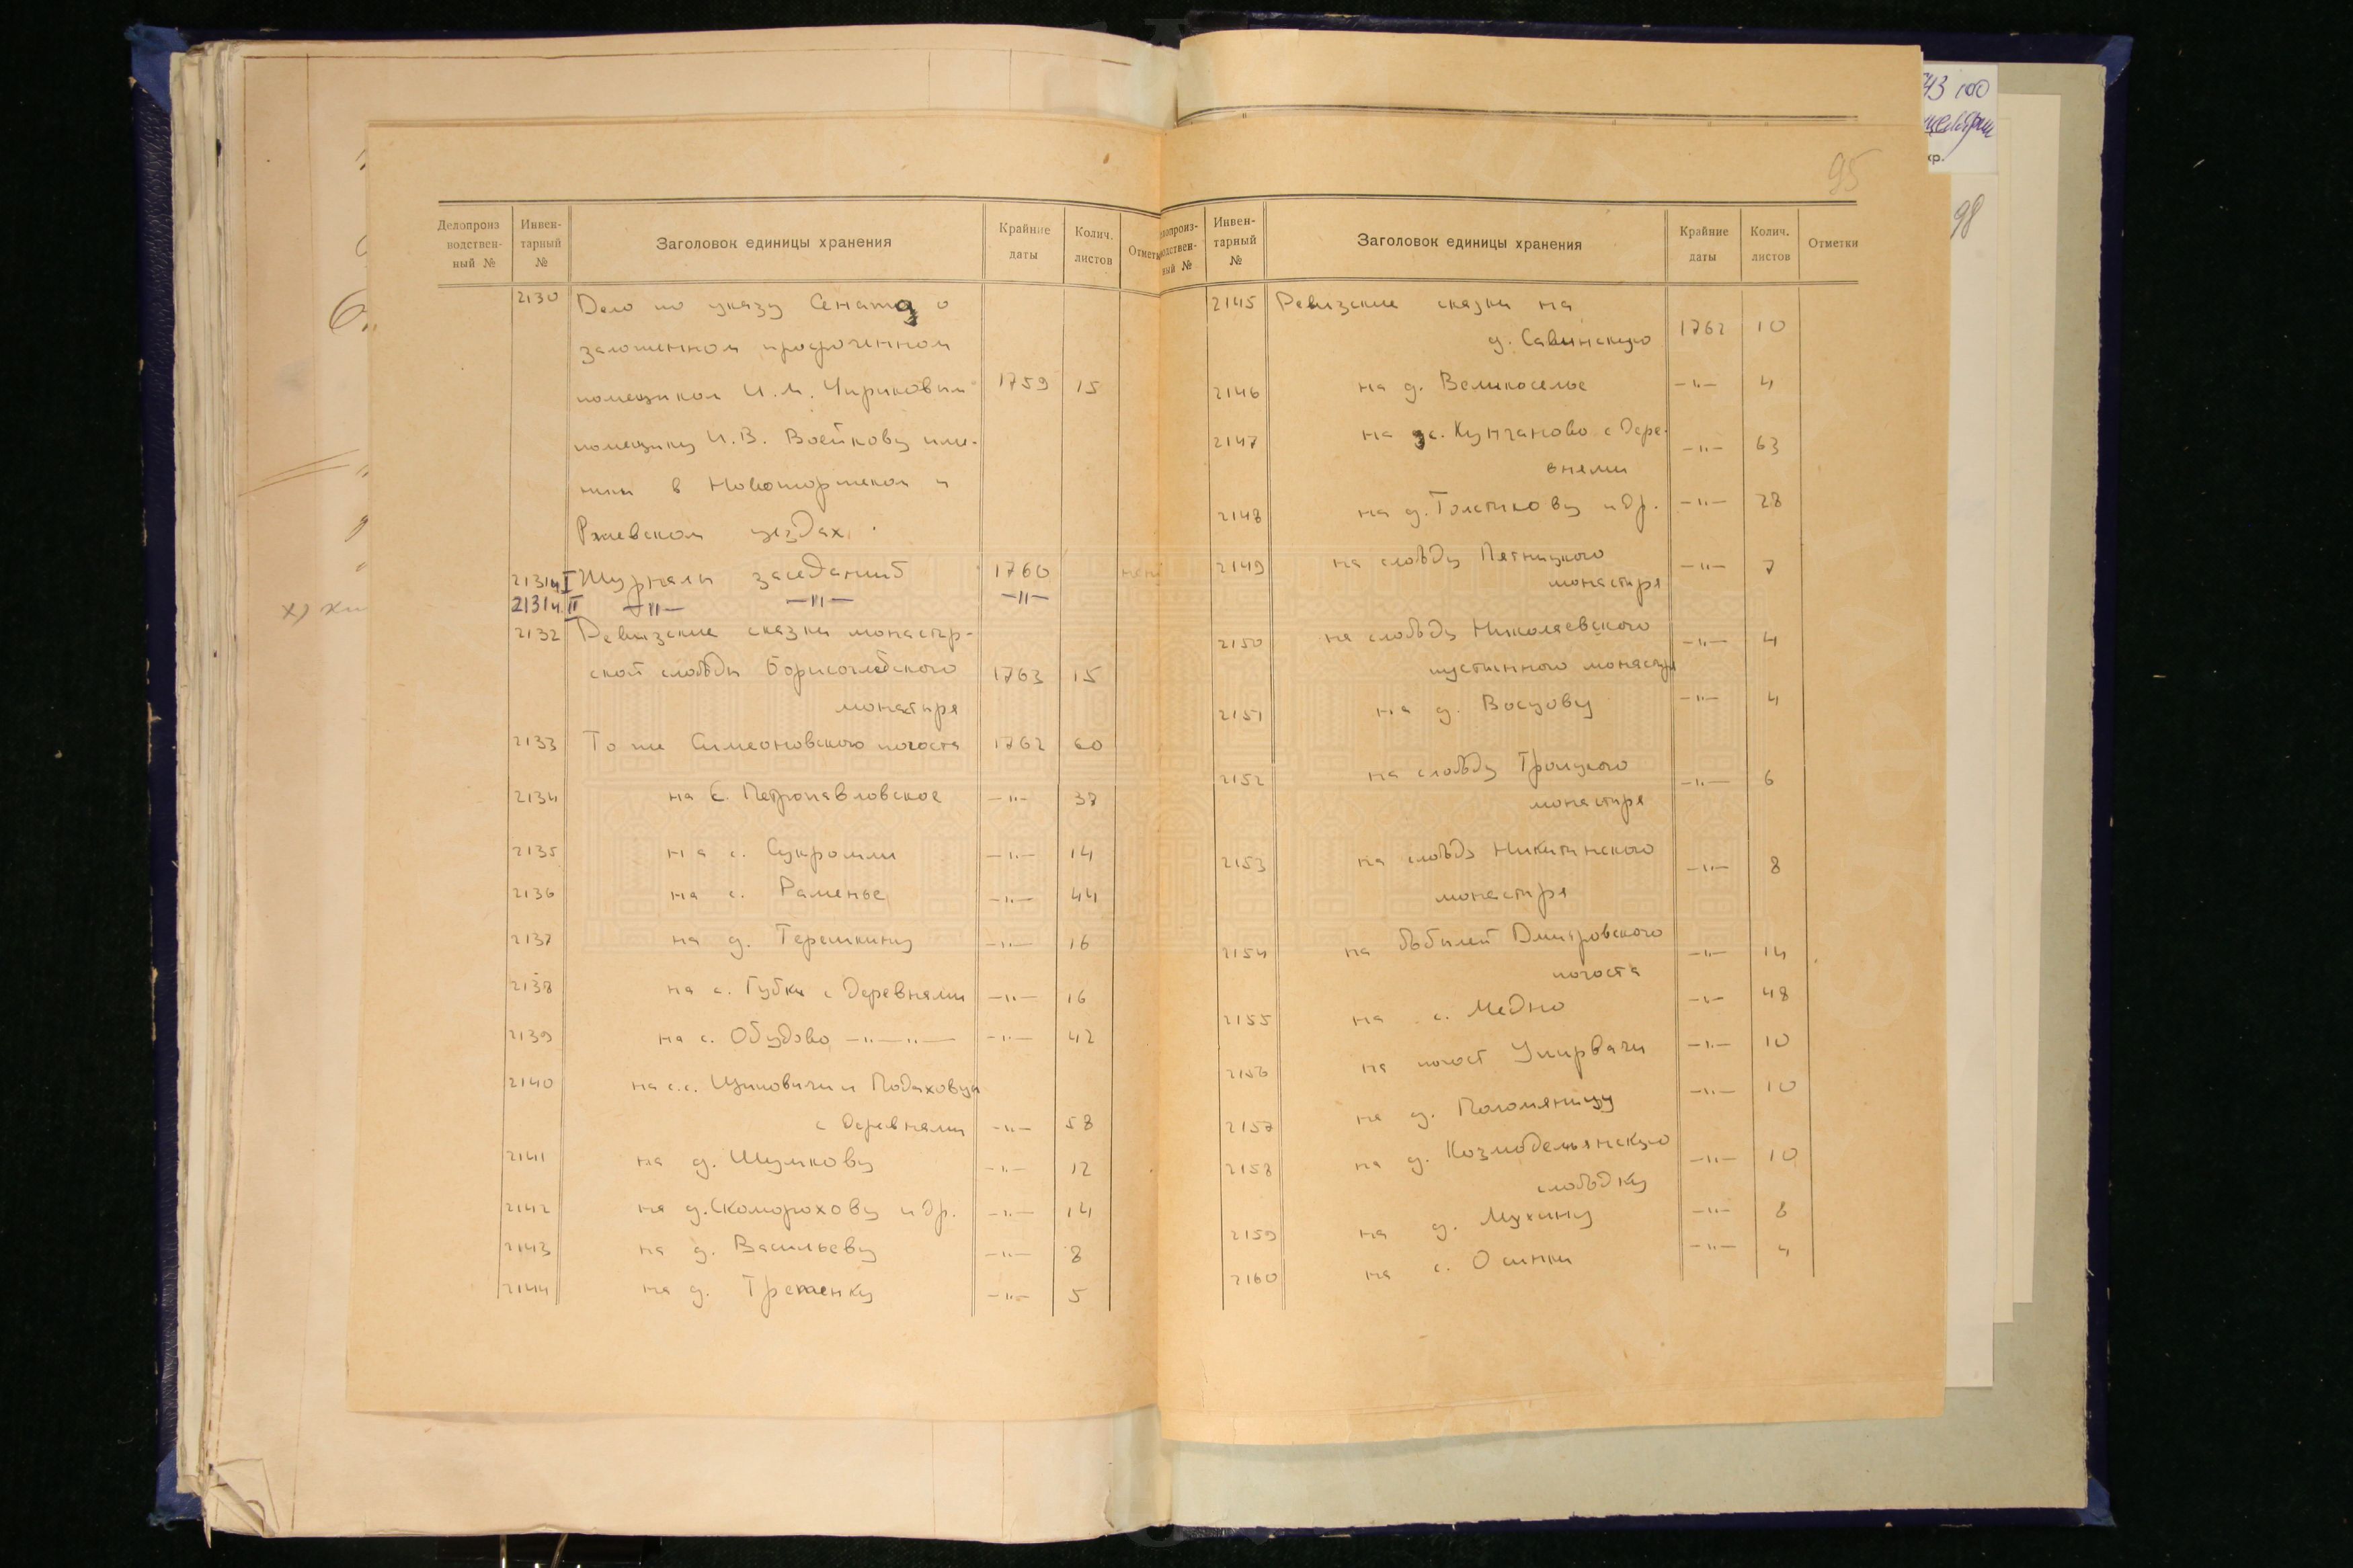 95
98
43 100
кр.
Делопроиз
водствен-
ный №
Инвен-
тарный
№
Заголовок единицы хранения
Крайние
даты
Колич.
листов
2130 Дело по указу Сената о
заложенном просроченном
помещиком И. М. Чириковым 1759 15
помещику И. В. Воейкову име-
нии в Новоторжском и
Ржевском уездах.
2131 ч I Журналы заседаний 1760 нет
2131 ч. II —"— —"— —"—
2132 Ревизские сказки монастыр-
ской слободы Борисоглебского 1763 15
монастыря
2133 То же Симеоновского погоста 1762 60
2134 на с. Петропавловское —"— 37
2135 на с. Сукромли —"— 14
2136 на с. Раменье —"— 44
2137 на д. Терешкину —"— 16
2138 на с. Губки с деревнями —"— 16
2139 на с. Обудово —"—"— —"— 42
2140 на с.с.
с деревнями —"— 58
2141 на д. Шумкову —"— 12
2142 на д. Скоморохову и др. —"— 14
2143 на д. Васильеву —"— 8
2144 на д. —"— 5
Инвен-
тарный
№
Заголовок единицы хранения
Крайние
даты
Колич.
листов
Отметки
2145 Ревизские сказки на
д. Савинскую 1762 10
2146 на д. Великоселье —"— 4
2147 на с. Кунганово с дере-
внями —"— 63
2148 на д. Толстикову и др. —"— 28
2149 на слободу Пятницкого
монастыря —"— 7
2150 на слободу Николаевского
пустынного монастыря —"— 4
2151 на д. —"— 4
2152 на слободу Троицкого
монастыря —"— 6
2153 на слободу Никитинского
монастыря —"— 8
2154 на бобылей Дмитровского
погоста —"— 14
2155 на с. Медно —"— 48
2156 на погост —"— 10
2157 на д. —"— 10
2158 на д. Козмодемьянскую
слободку —"— 10
2159 на д. Мухину —"— 8
2160 на с. Осинки —"— 4